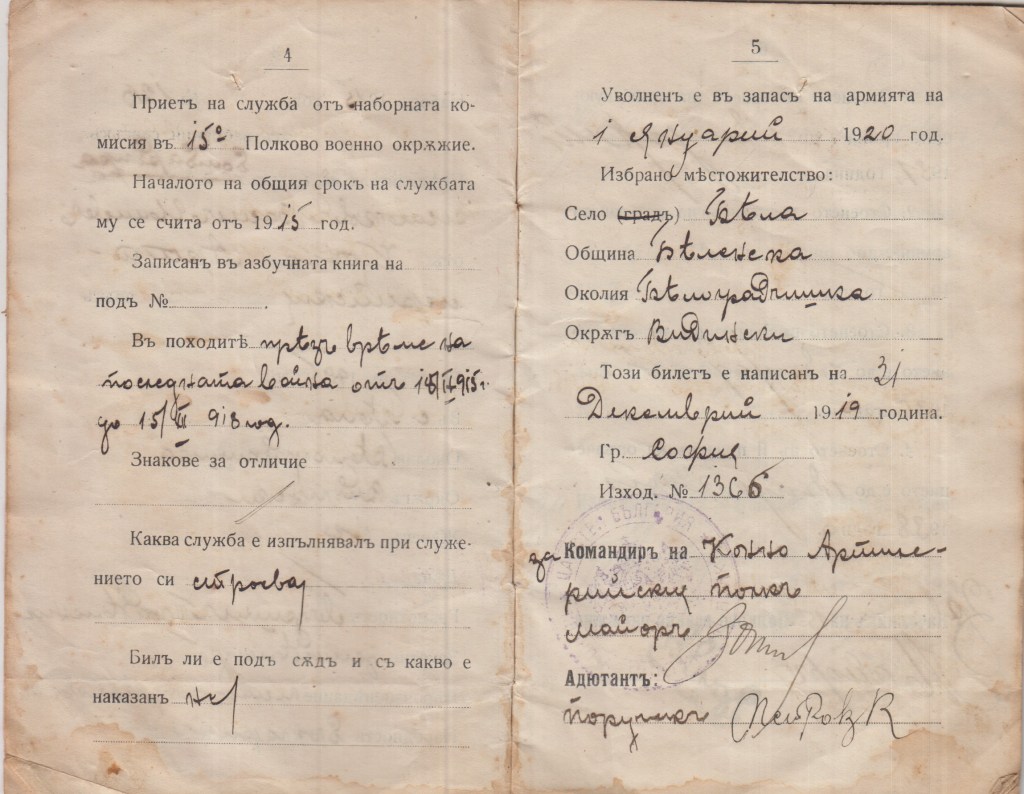 4
Приетъ на служба отъ наборната ко-
мисия въ 15º Полково военно окрѫжие.
Началото на общия срокъ на службата
му се счита отъ 1915 год.
Записанъ въ азбучната книга на
подъ №
Въ походитѣ прѣзъ врѣме на
последната война отъ
до 15/III 918 год.
Знакове за отличие
Каква служба е изпълнявалъ при служе-
нието си строева
Билъ ли е подъ сѫдъ и съ какво е
наказанъ не
5
Уволненъ е въ запасъ на армията на
1 Януарий 1920 год.
Избрано мѣстожителство:
Село (градъ) Бѣла
Община Бѣленска
Околия Бѣлоградчишка
Окрѫгъ Видински
Този билетъ е написанъ на 31
Декемврий 1919 година.
Гр. София
Изход. № 1366
БЪЛГАРИЯ
за Командиръ на Конно Артиле-
рийски полкъ
майоръ
Адютантъ:
поручикъ